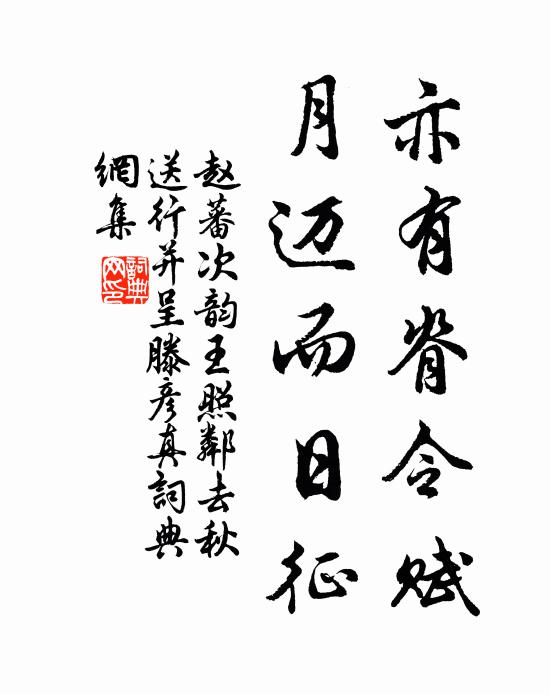 亦有脊令赋
月迈而日征
赵蕃次韵王照鄰去秋
送行并呈滕彦真詞典
網集
詞典網印